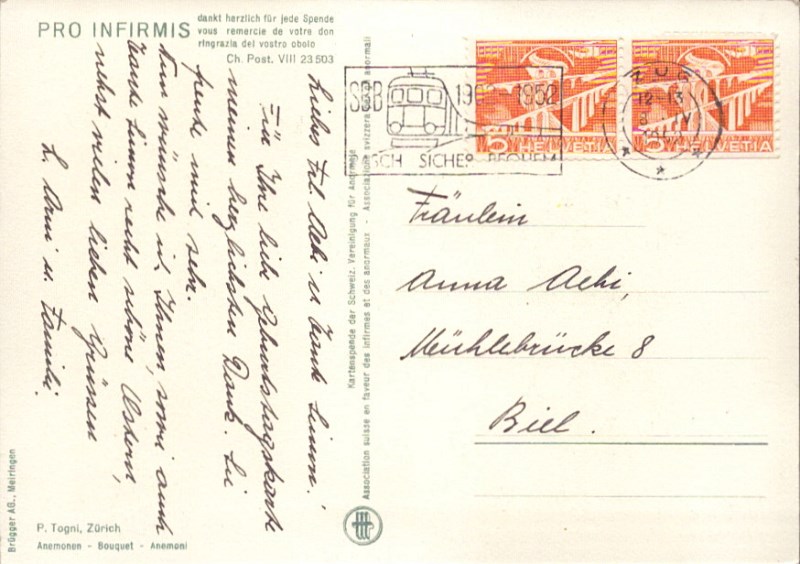 PRO INFIRMIS
dankt herzlich für jede Spende
vous remercie de votre don
ringrazia del vostro obolo
Ch. Post. VIII 23 503
Liebes Frl. Aebi u. Tante Simon!
Für Ihre liebe Geburtstagskarte
meinen herzlichsten Dank. Sie
freute mich sehr.
Nun wünsche ich Ihnen, sowie auch
Tante Simon recht schöne Ostern,
nebst vielen lieben Grüssen
L. Arni u. Familie.
Brügger AG., Meiringen
P. Togni, Zürich
Anemonen - Bouquet - Anemoni
Kartenspende der Schweiz. Vereinigung für Anormale
Association suisse en faveur des infirmes et des anormaux - Associazione svizzera anormali
SBB 1902 1952
RASCH SICHER BEQUEM
5 HELVETIA
5 HELVETIA
ZUG
12-13
8 IV
Fräulein
Anna Aebi,
Mühlebrücke 8
Biel.